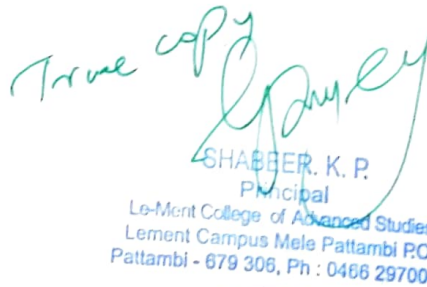 True copy
SHABEER. K. P.
Principal
Le-Ment College of Advanced Studies
Lement Campus Mele Pattambi P.O
Pattambi - 679 306, Ph : 0466 29700